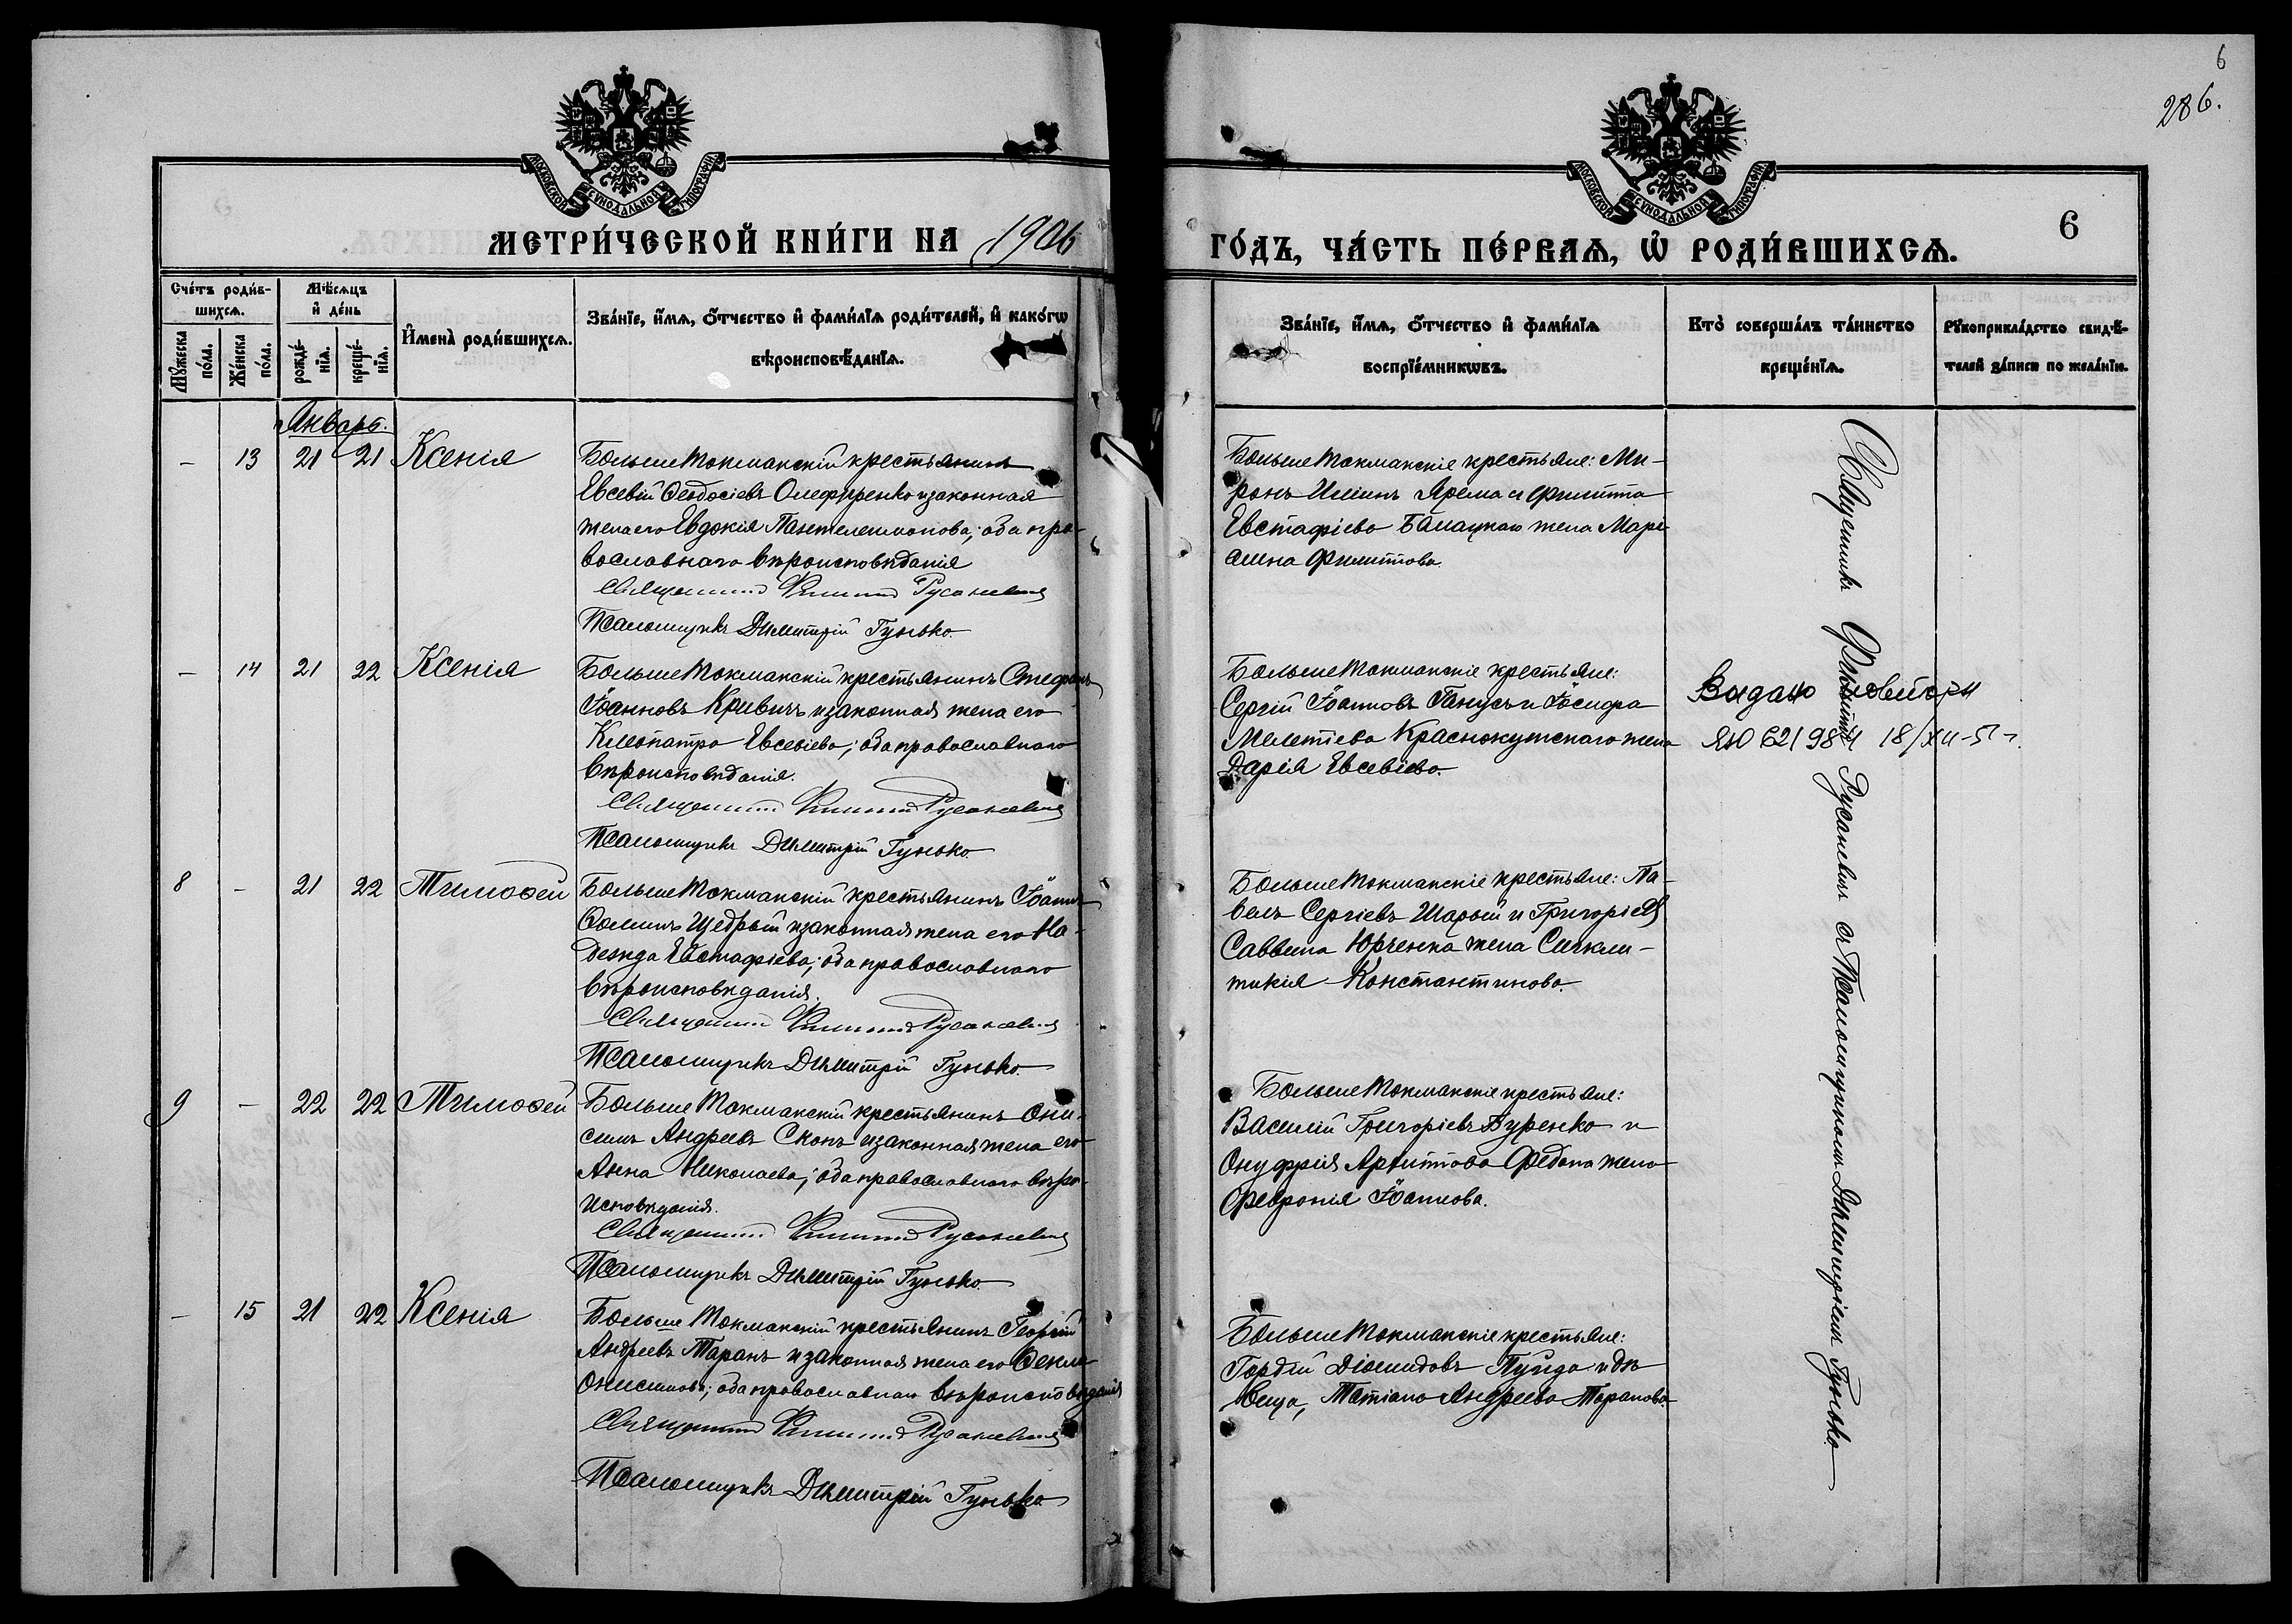 6
286.
МОСКОВСКОЙ СѴНОДАЛЬНОЙ ТИПОГРАФІИ
МОСКОВСКОЙ СѴНОДАЛЬНОЙ ТИПОГРАФІИ
МЕТРИ́ЧЕСКОЙ КНИ́ГИ НА 1906
ГО́ДЪ, ЧА́СТЬ ПЕ́РВАѦ, Ѡ҆ РОДИ́ВШИХСѦ.
6
Сче́тъ роди́в-
шихсѧ.
Мꙋ́жеска по́ла.
Же́нска по́ла.
Мѣ́сѧцъ
и҆ де́нь
рожде́-
нїѧ.
креще́-
нїѧ.
И҆мена̀ роди́вшихсѧ.
Зва́нїе, и҆́мѧ, ѻ҆́тчество и҆ фами́лїѧ роди́телей, и҆ како́гѡ
вѣроисповѣ́данїѧ.
Зва́нїе, и҆́мѧ, ѻ҆́тчество и҆ фами́лїѧ
воспрїе́мникѡвъ.
Кто̀ соверша́лъ та́инство
креще́нїѧ.
Рꙋкоприкла́дство свидѣ́-
телей за́писи по жела́нїю.
Январь.
– 13 21 21 Ксенія
БольшеТокмакскій крестьянинъ
Евсевій Ѳеодосіевъ Олефиренко и законная
жена его Евдокія Пантелеимонова; оба пра-
вославнаго вѣроисповѣданія
Священникъ Филиппъ Русаневичъ
Псаломщикъ Димитрій Гунько
БольшеТокмакскіе крестьяне: Ми-
ронъ Иліинъ Ярема и Филиппа
Евстафіева жена Мари-
амна Филиппова.
– 14 21 22 Ксенія
БольшеТокмакскій крестьянинъ Стефанъ
Іоанновъ Кривичъ и законная жена его
Клеопатра Евсевіева; оба православнаго
вѣроисповѣданія.
Священникъ Филиппъ Русаневичъ
Псаломщикъ Димитрій Гунько.
БольшеТокмакскіе крестьяне:
Сергій Іоанновъ Ганусъ и Іосифа
Мелетіева Краснокутскаго жена
Дарія Евсевіева.
Видано
ЯЮ 621984 18/XII-51 г.
8 – 21 22 Тимоѳей
БольшеТокмакскій крестьянинъ Іоаннъ
Ѳоминъ Щедрый и законная жена его На-
дежда Евстафіева; оба православнаго
вѣроисповѣданія.
Священникъ Филиппъ Русаневичъ
Псаломщикъ Димитрій Гунько.
БольшеТокмакскіе крестьяне: Па-
велъ Сергіевъ Шарый и Григорія
Саввина Юрченка жена Сигкли-
тикія Константинова.
9 – 22 22 Тимоѳей
БольшеТокмакскій крестьянинъ Они-
симъ Андреевъ Скопъ и законная жена его
Анна Николаева; оба православнаго вѣро-
исповѣданія.
Священникъ Филиппъ Русаневичъ
Псаломщикъ Димитрій Гунько.
БольшеТокмакскіе крестьяне:
Василій Григоріевъ Буренко и
Онуфрія Архиппова Федана жена
Феvронія Іоаннова.
– 15 21 22 Ксенія
БольшеТокмакскій крестьянинъ Георгій
Андреевъ Таранъ и законная жена его Ѳекла
Онисимова; оба православнаго вѣроисповѣданія
Священникъ Филиппъ Русаневичъ
Псаломщикъ Димитрій Гунько
БольшеТокмакскіе крестьяне:
Гордій Діомидовъ и дѣ-
вица, Татіана Андреева Таранова
Священникъ Филиппъ Русаневичъ съ Псаломщикомъ Димитріемъ Гунько